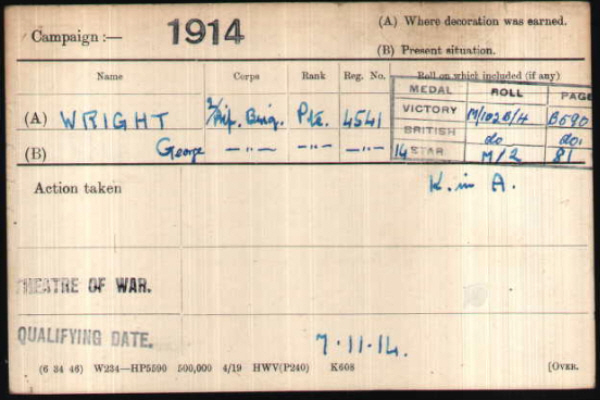 Campaign :— 1914
(A) Where decoration was earned.
(B) Present situation.
Name Corps Rank Reg. No. Roll on which included (if any)
MEDAL ROLL PAGE
(A) WRIGHT 2/Rif. Brig. Pte. 4541 VICTORY M/102B/4 B690
BRITISH do do.
(B) George —"— —"— —"— 14 STAR M/2 81
Action taken K. in A.
THEATRE OF WAR.
QUALIFYING DATE. 7.11.14.
(6 34 46) W234—HP5590 500,000 4/19 HWV(P240) K608 [OVER.